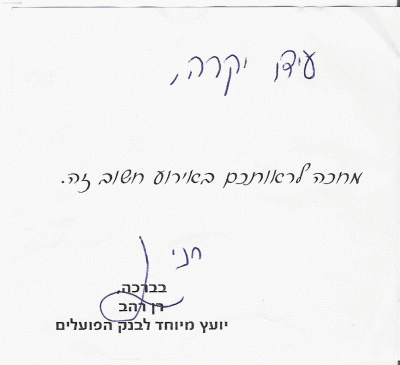 עידן יקרה,
מחכה לראותכם באירוע חשוב זה.
חני
בברכה,
רן רהב
יועץ מיוחד לבנק הפועלים